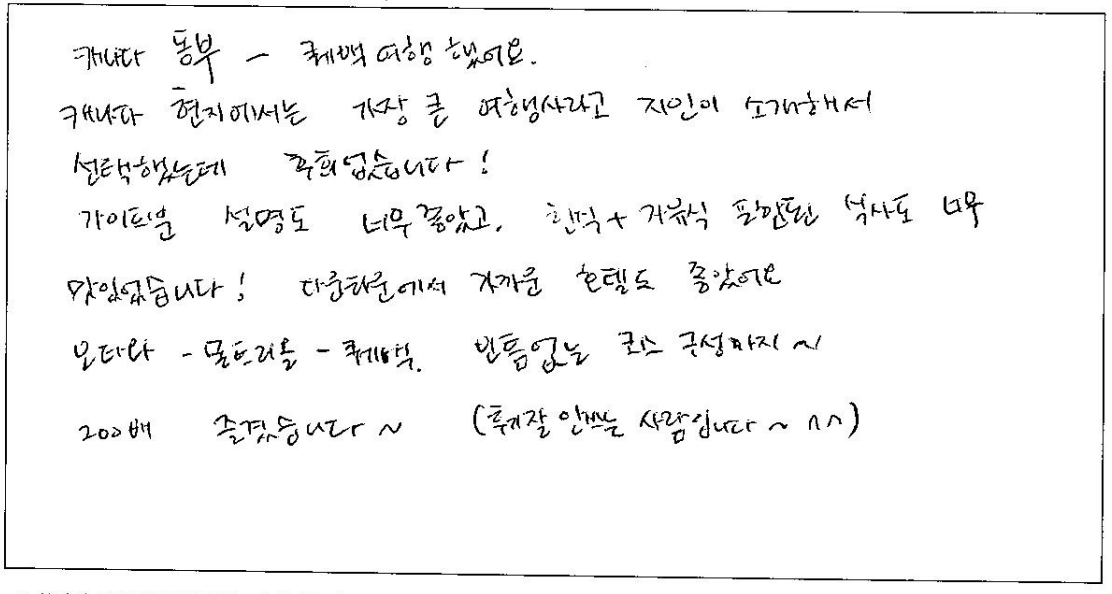 캐나다 동부 - 퀘백 여행 했어요.
캐나다 현지에서는 가장 큰 여행사라고 지인이 소개해서
선택했는데 후회없습니다!
가이드분 설명도 너무 좋았고, 한식+거뮤식 포함된 식사도 너무
맛있었습니다! 다운타운에서 가까운 호텔도 좋았어요
오타와 - 몬트리올 - 퀘백. 빈틈없는 코스 구성까지 ~
200배 즐겼습니다 ~ (후기잘 안쓰는 사람입니다 ~ ^^)